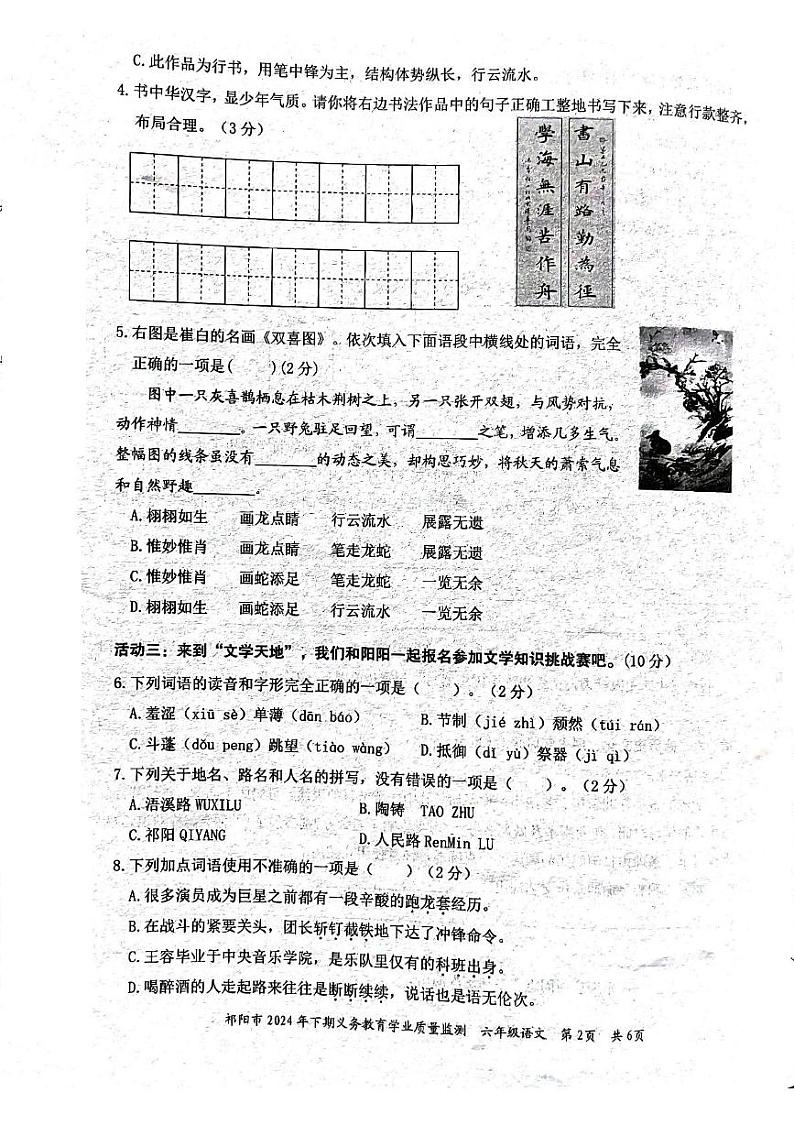 C.此作品为行书，用笔中锋为主，结构体势纵长，行云流水。
4.书中华汉字，显少年气质。请你将右边书法作品中的句子正确工整地书写下来，注意行款整齐，
布局合理。(3分)
書山有路勤為徑
學海無涯苦作舟
5.右图是崔白的名画《双喜图》。依次填入下面语段中横线处的词语，完全
正确的一项是(　　)(2分)
图中一只灰喜鹊栖息在枯木荆树之上，另一只张开双翅，与风势对抗，
动作神情________。一只野兔驻足回望，可谓________之笔，增添几多生气。
整幅图的线条虽没有________的动态之美，却构思巧妙，将秋天的萧索气息
和自然野趣________。
A.栩栩如生　画龙点睛　行云流水　展露无遗
B.惟妙惟肖　画龙点睛　笔走龙蛇　展露无遗
C.惟妙惟肖　画蛇添足　笔走龙蛇　一览无余
D.栩栩如生　画蛇添足　行云流水　一览无余
活动三：来到“文学天地”，我们和阳阳一起报名参加文学知识挑战赛吧。(10分)
6.下列词语的读音和字形完全正确的一项是（　　）。（2分）
A.羞涩（xiū sè）单薄（dān báo）　B.节制（jié zhì）颓然（túi rán）
C.斗蓬（dǒu peng）跳望（tiào wàng）　D.抵御（dǐ yù）祭器（jì qì）
7.下列关于地名、路名和人名的拼写，没有错误的一项是（　　）。（2分）
A.浯溪路 WUXILU　B.陶铸　TAO ZHU
C.祁阳 QIYANG　D.人民路 RenMin LU
8.下列加点词语使用不准确的一项是（　　）（2分）
A.很多演员成为巨星之前都有一段辛酸的跑龙套经历。
B.在战斗的紧要关头，团长斩钉截铁地下达了冲锋命令。
C.王容毕业于中央音乐学院，是乐队里仅有的科班出身。
D.喝醉酒的人走起路来往往是断断续续，说话也是语无伦次。
祁阳市 2024 年下期义务教育学业质量监测　六年级语文　第2页　共6页